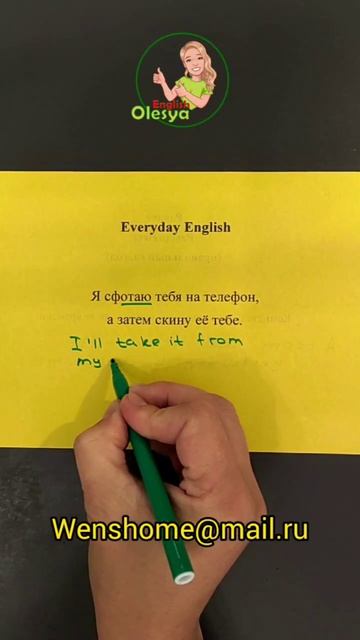 English
Olesya
Everyday English
Я сфотаю тебя на телефон,
а затем скину её тебе.
I'll take it from
my
Wenshome@mail.ru